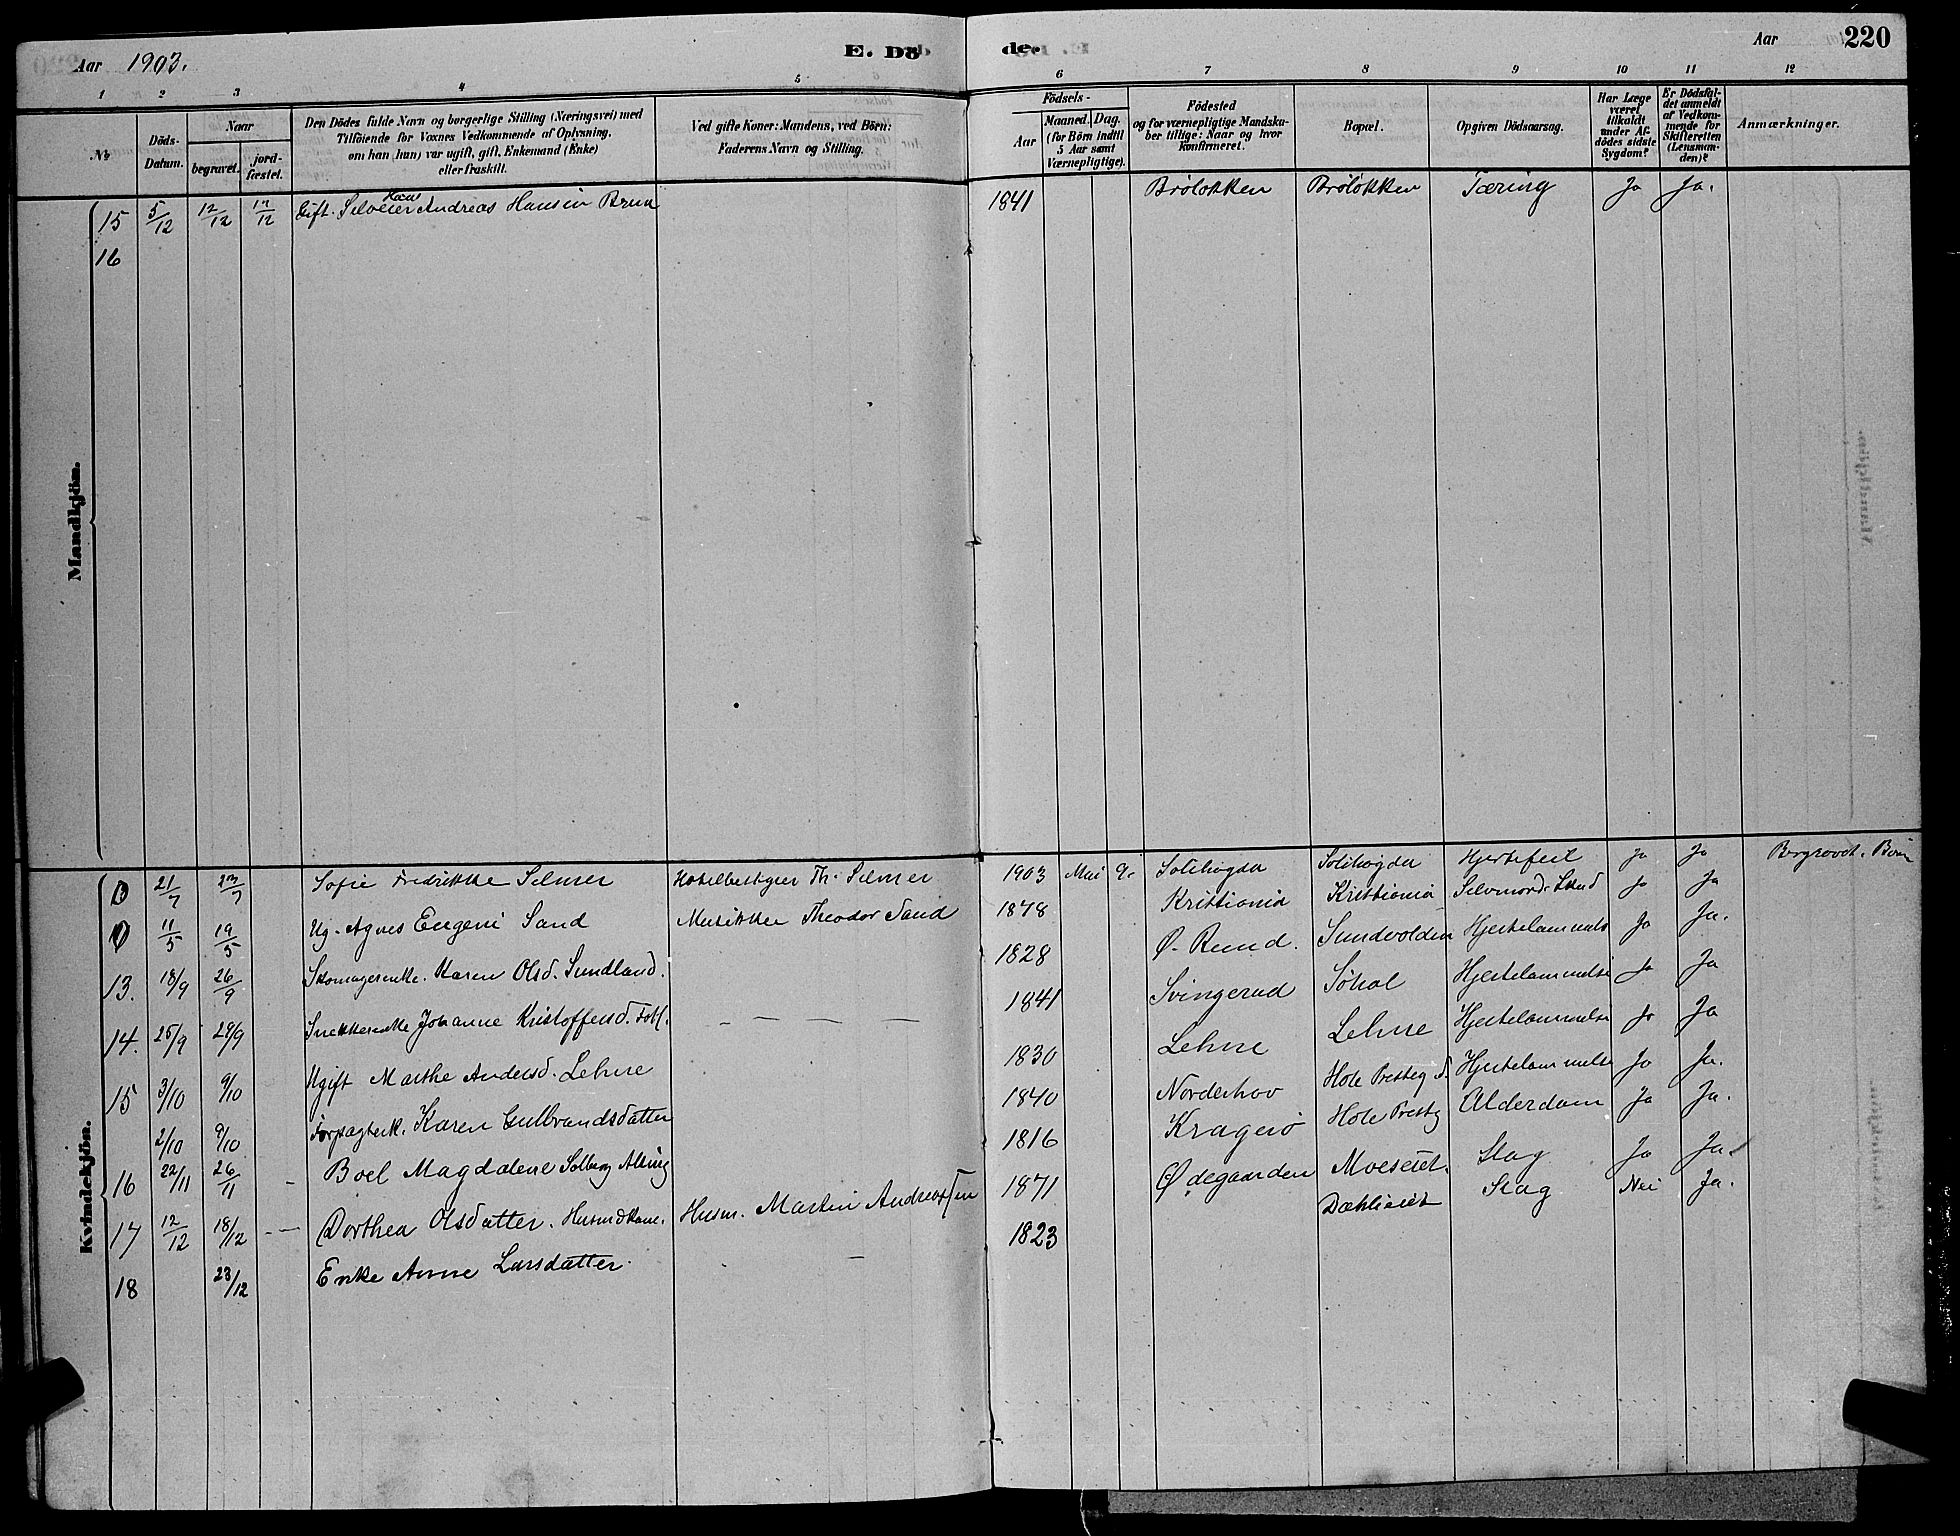 Aar 1903. E. Döde. Aar 220
1 2 3 4 5 6 7 8 9 10 11 12
№
Döds-Datum.
Naar
begravet.
jord-fæstet.
Den Dödes fulde Navn og borgerlige Stilling (Næringsvei) med
Tilföiende for Voxnes Vedkommende af Oplysning,
om han (hun) var ugift, gift, Enkemand (Enke)
eller fraskilt.
Ved gifte Koner: Mandens, ved Börn:
Faderens Navn og Stilling.
Födsels-
Aar
Maaned. Dag.
(for Börn indtil
5 Aar samt
Værnepligtige).
Födested
og for værnepligtige Mandska-
ber tillige: Naar og hvor
Konfirmeret.
Bopæl.
Opgiven Dödsaarsag.
Har Læge
været
tilkaldt
under Af-
dödes sidste
Sygdom?
Er Dödsfal-
det anmeldt
af Vedkom-
mende for
Skifteretten
(Lensman-
den)?
Anmærkninger.
Mandkjön.
15 5/12 12/12 12/12 Gift. Selveier Hans Andreas Hansen Brua 1841 Bröløkken Bröløkken Tæring Ja Ja.
16
Kvindekjön.
21/7 23/7 Sofie Fredrikke Selmer Hotelbestyrer Th. Selmer 1903 Mai 9. Solihøgda Solihøgda Hjertefeil Ja Ja Begravet
11/5 19/5 Ug. Agnes Eugeni Sand Musikker Theodor Sand 1878 Kristiania Kristiania Selvmord. Ja Ja
13. 18/9 26/9 Skomagerenke. Karen Olsd. Sundland. 1828 Ø. Rund. Sundvolden Hjertelammelse Ja Ja.
14. 25/9 29/9 Snekkerenke Johanne Kristoffersd. 1841 Svingerud Søhol Hjertelammelse Ja Ja
15 3/10 9/10 Ugift Marthe Andersd. Lehne 1830 Lehne Lehne Hjertelammelse Ja Ja
2/10 9/10 Karen Gulbrandsdatter 1840 Norderhov Hole Hjertelammelse Ja Ja.
16 22/11 26/11 - Boel Magdalene Solberg 1816 Kragerö Hole Presteg Alderdom Ja Ja.
17 12/12 18/12 - Dorthea Olsdatter. Husmdkone. Husm. Martin Andreassen 1871 Ødegaarden Moeseiet. Slag Ja Ja.
18 23/12 Enke Anne Larsdatter. - 1823 Dæhlieiet Slag Nei Ja.